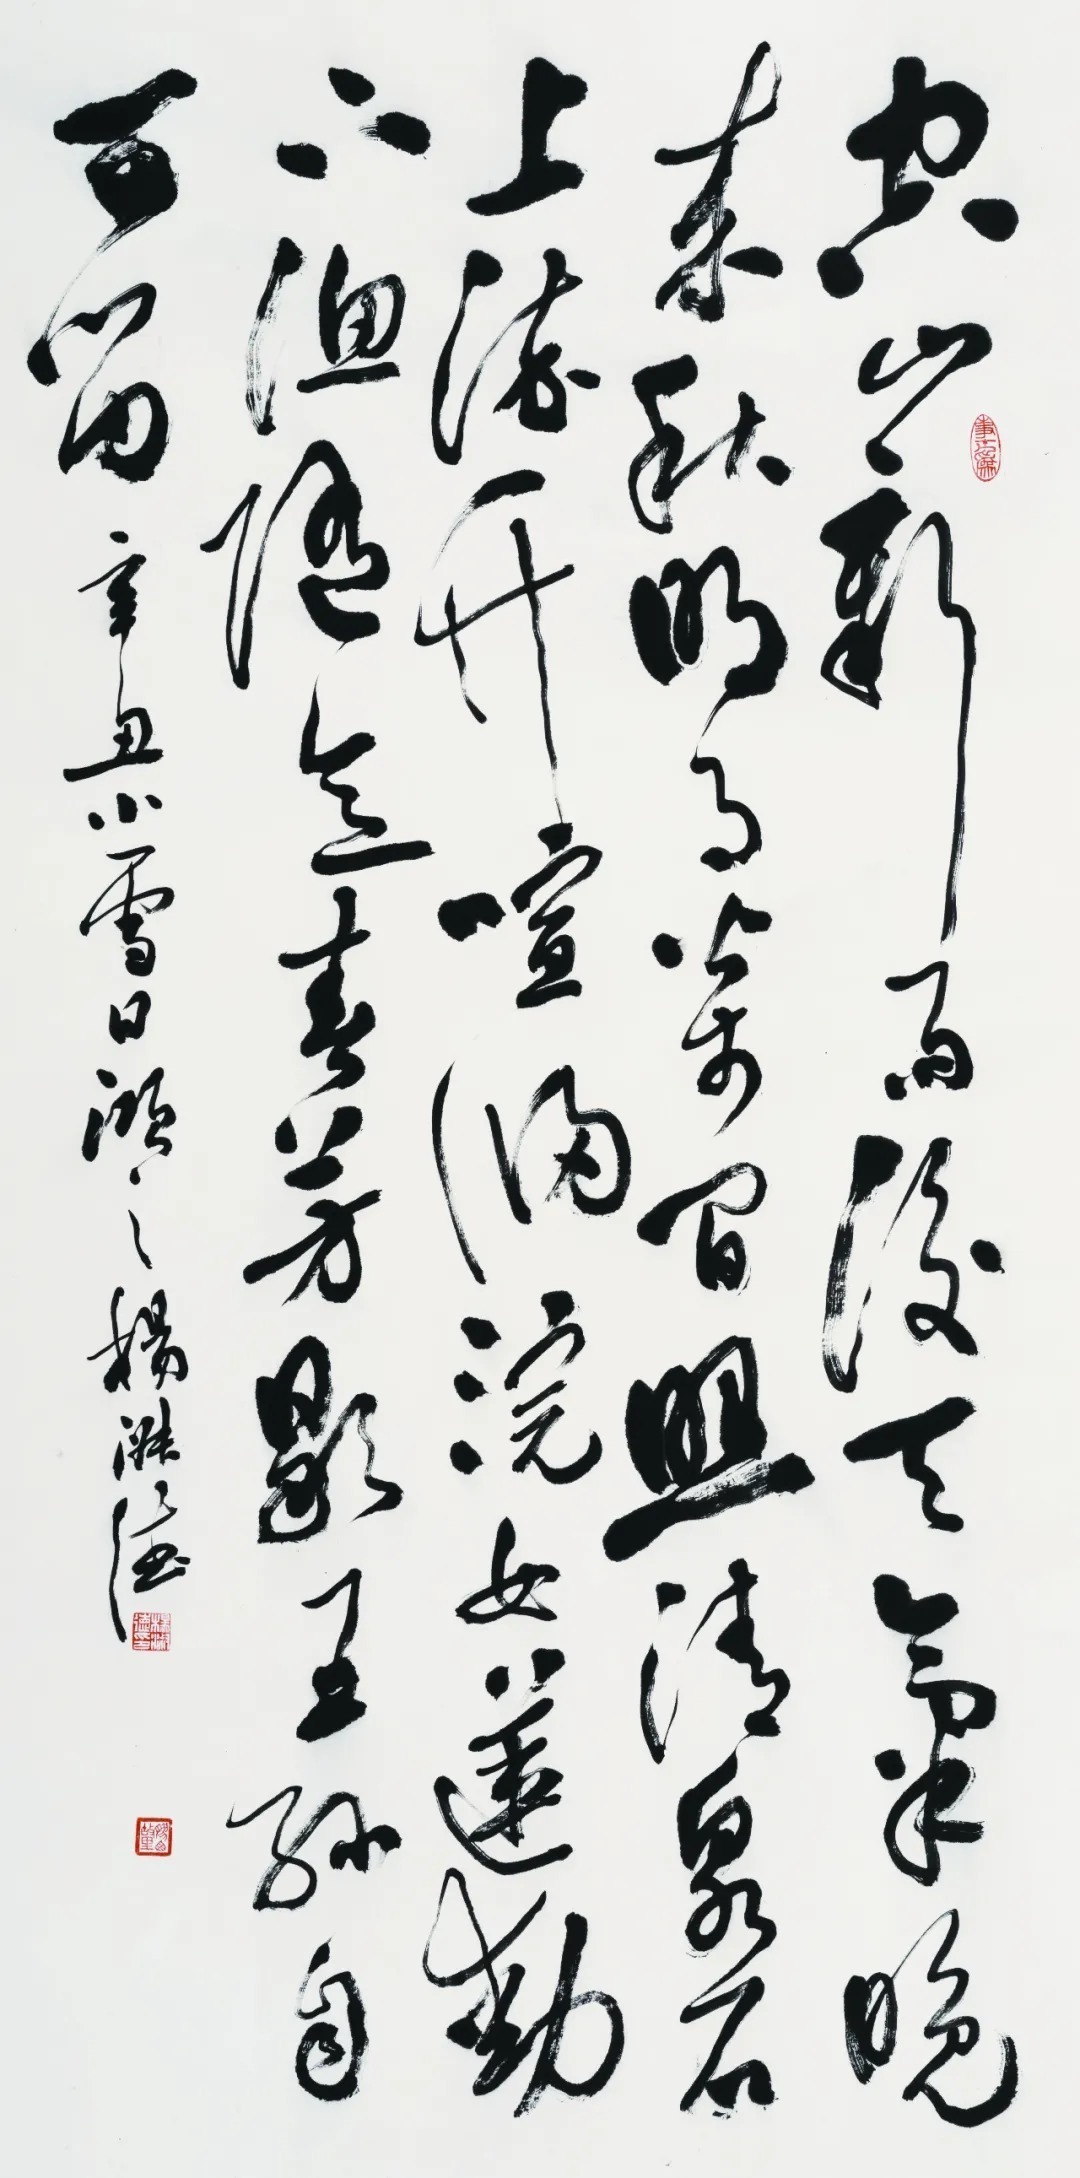 空山新雨後天氣晚
來秋明月松間照清泉石
上流竹喧歸浣女蓮動
下漁隨意春芳歇王孫自
可留 辛丑小雪日 楊淑德